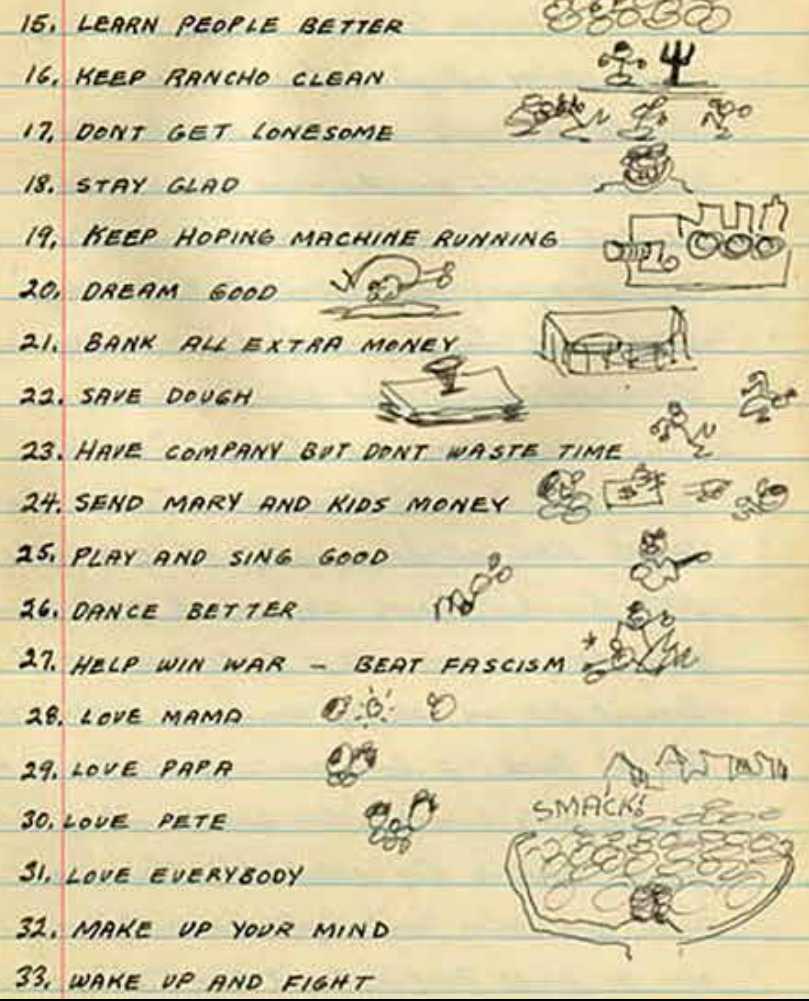 15. LEARN PEOPLE BETTER
16. KEEP RANCHO CLEAN
17. DONT GET LONESOME
18. STAY GLAD
19. KEEP HOPING MACHINE RUNNING
20. DREAM GOOD
21. BANK ALL EXTRA MONEY
22. SAVE DOUGH
23. HAVE COMPANY BUT DONT WASTE TIME
24. SEND MARY AND KIDS MONEY
25. PLAY AND SING GOOD
26. DANCE BETTER
27. HELP WIN WAR - BEAT FASCISM
28. LOVE MAMA
29. LOVE PAPA
30. LOVE PETE
SMACK!
31. LOVE EVERYBODY
32. MAKE UP YOUR MIND
33. WAKE UP AND FIGHT